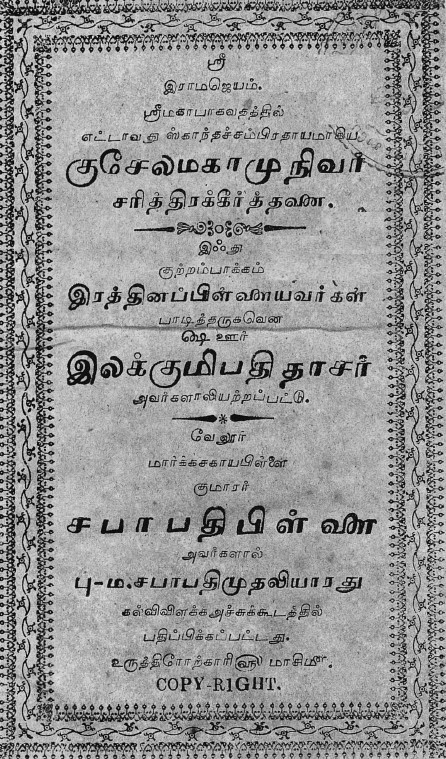 ஸ்ரீ
இராமஜெயம்.
ஸ்ரீமகாபாகவதத்தில்
எட்டாவது ஸ்காந்தச்சம்பிரதாயமாகிய
குசேலமகாமுநிவர்
சரித்திரக்கீர்த்தனை.
இஃது
குற்றம்பாக்கம்
இரத்தினப்பிள்ளையவர்கள்
பாடித்தருகவென
௸ ஊர்
இலக்குமிபதிதாசர்
அவர்களாலியற்றப்பட்டு.
வேலூர்
மார்க்கசகாயபிள்ளை
குமாரர்
சபாபதிபிள்ளை
அவர்களால்
பு-ம.சபாபதிமுதலியாரது
கல்விவிளக்கஅச்சுக்கூடத்தில்
பதிப்பிக்கப்பட்டது.
உருத்திரோற்காரி௵ மாசி௴.
COPY-RIGHT.